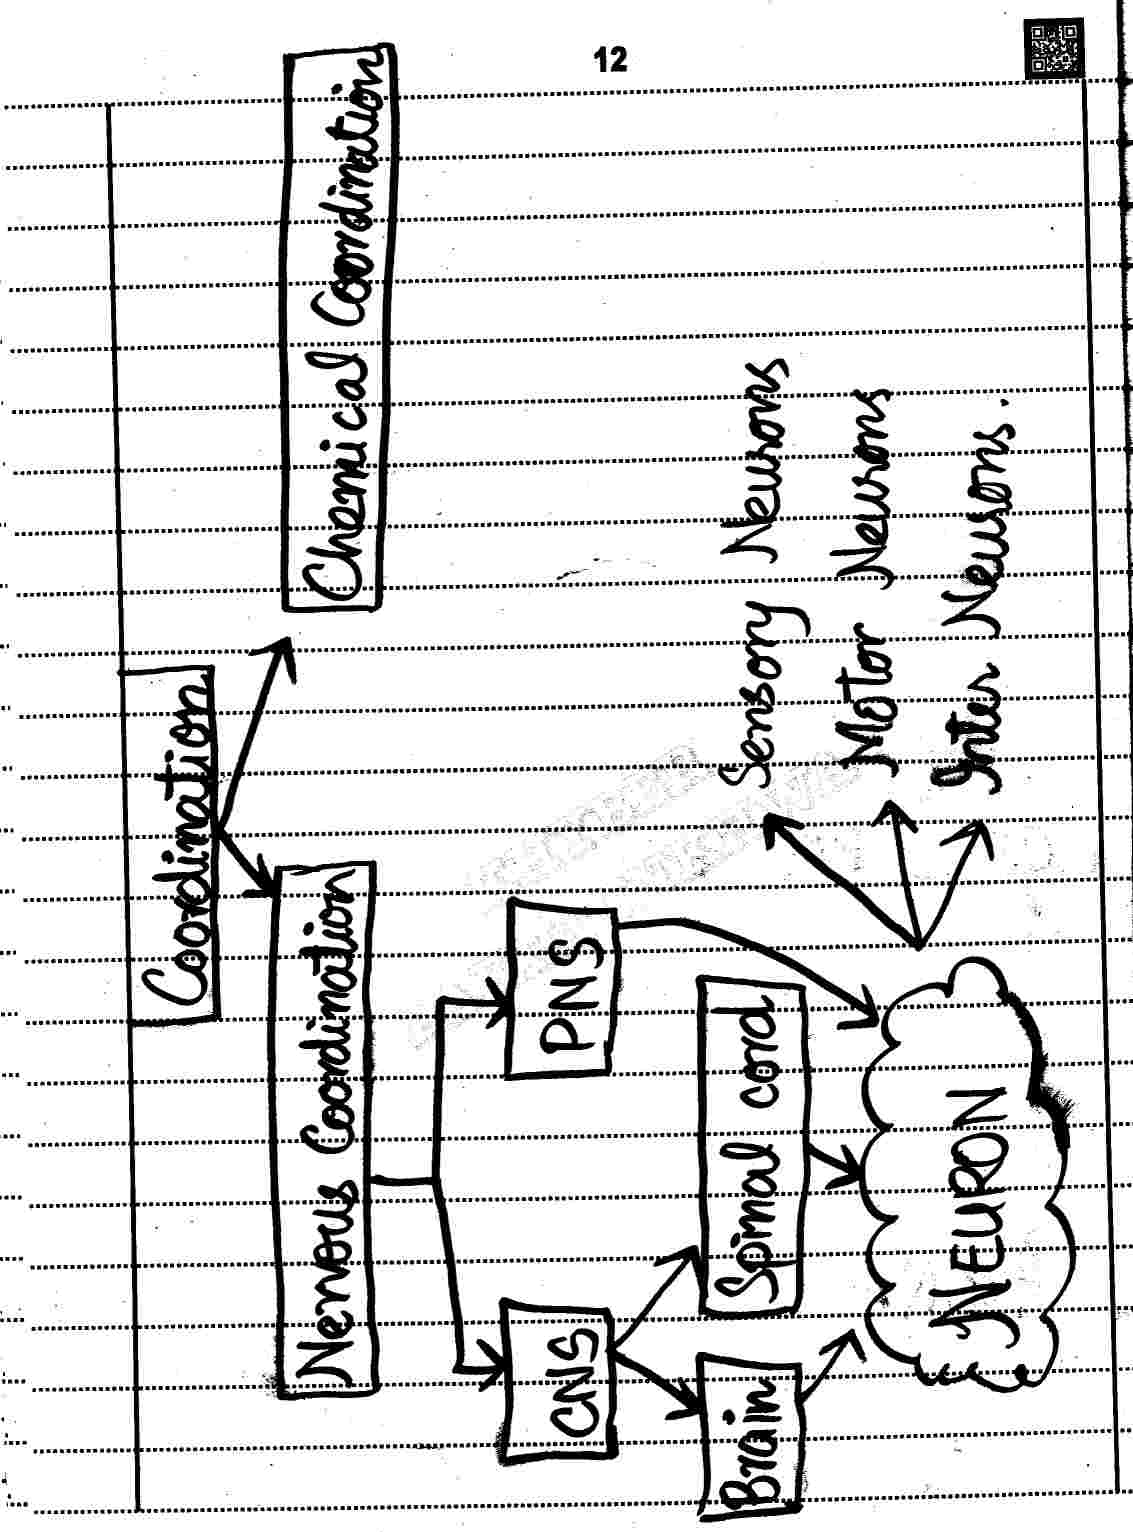 12
Coordination
Nervous Coordination
Chemical Coordination
CNS
PNS
Brain
Spinal cord
NEURON
Sensory Neurons
Motor Neurons
Inter Neurons.